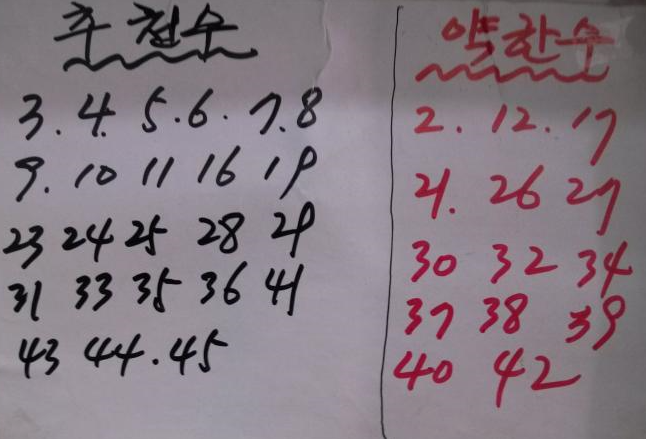 추천수
3. 4. 5. 6. 7. 8
9. 10 11 16 19
23 24 25 28 29
31 33 35 36 41
43 44. 45
약한수
2. 12. 17
21. 26 27
30 32 34
37 38 39
40 42